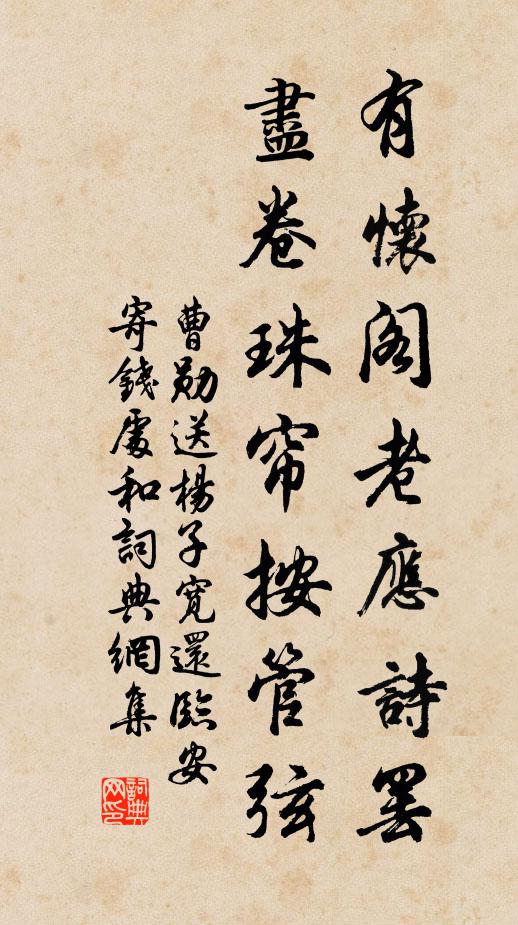 有懷閣老應詩罷
盡卷珠帘按管弦
曹勛送楊子寬還臨安
寄錢處和詞典網集
詞典网印